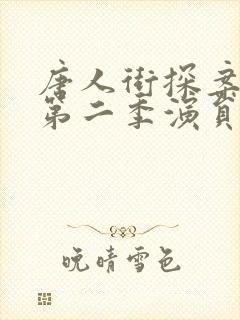 唐人街探案
第二季演员
晚晴雪色